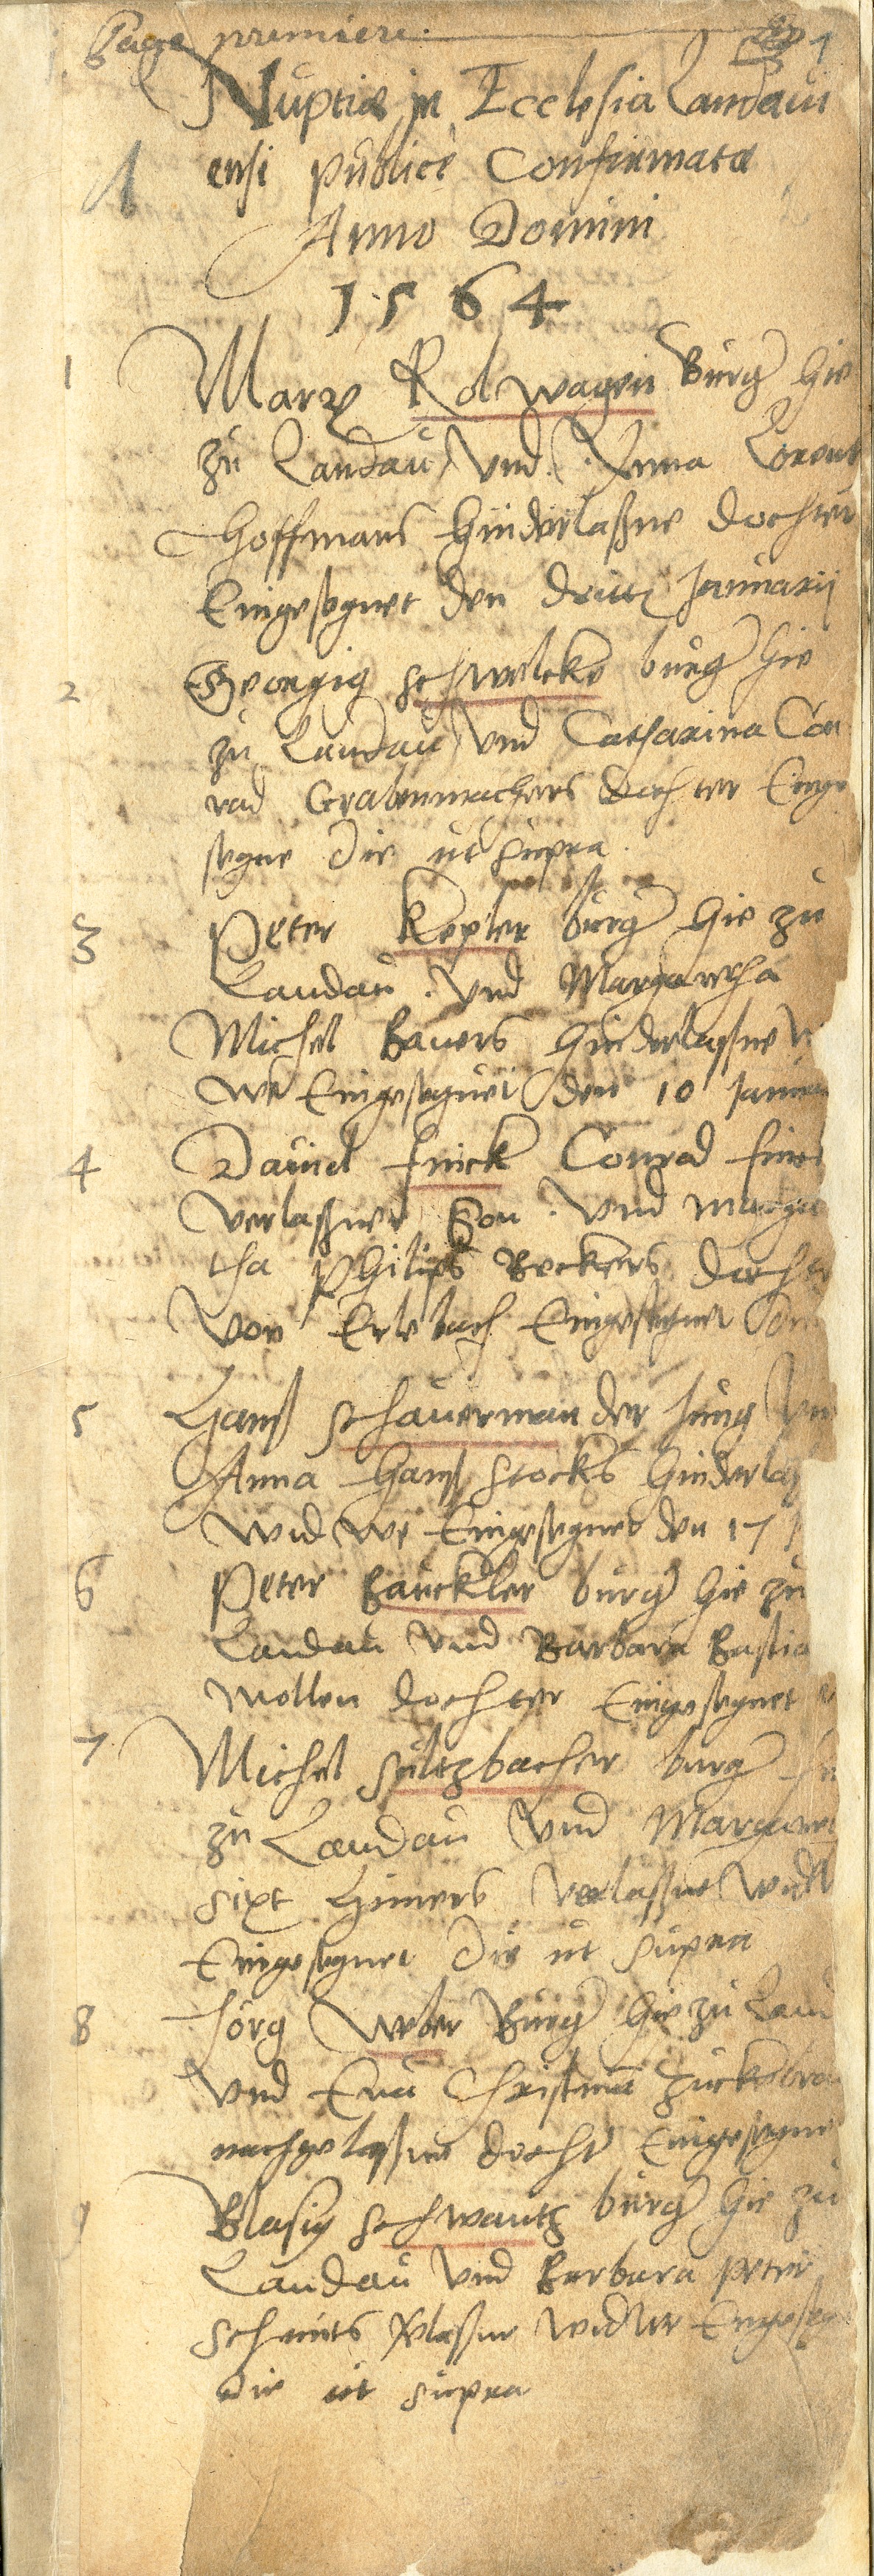 Page premiere. 1
Nuptiæ in Ecclesia Landaui
ensi publicè Confirmatæ
Anno Domini
1564
1 Marx Rolwagen Burger hie
zu Landau Vnd Anna Lorent
Hoffmans hinderlaßne dochter
Eingesegnet den dritt Januarij
2 Georgig schwelcke burger hie
zu Landau Vnd Catharina Con
rad Grabenmachers dochter Einge
segne die ut supra
3 Peter Kepler burger hie zu
Landau. Vnd Margaretha
Michel Bauers hinderlaßne
we Eingesegnet den 10 Januar
4 Dauid finck Conrad finck
verlaßner Son. Vnd Marga
tha Philips Beckers dochter
von Erlebach Eingesegnet
5 Hans schauerman der Jung Vnd
Anna Hans stocks hinderlaß
widwe Eingesegnet den 17
6 Peter Bauckler burger hie zu
Landau Vnd Barbara Bastia
Mollen dochter Eingesegnet
7 Michel sultzbacher burger hie
zu Landau Vnd Margaret
sixt Himers verlaßne Wid
Eingesegnet die ut supra
8 Jörg Weber Burger hie zu Land
Vnd Eua Christman
nachgelaßne dochter Eingesegne
9 Blasig schwantz burger hie zu
Landau Vnd Barbara peter
verlaßne widwe Eingeseg
die ut supra